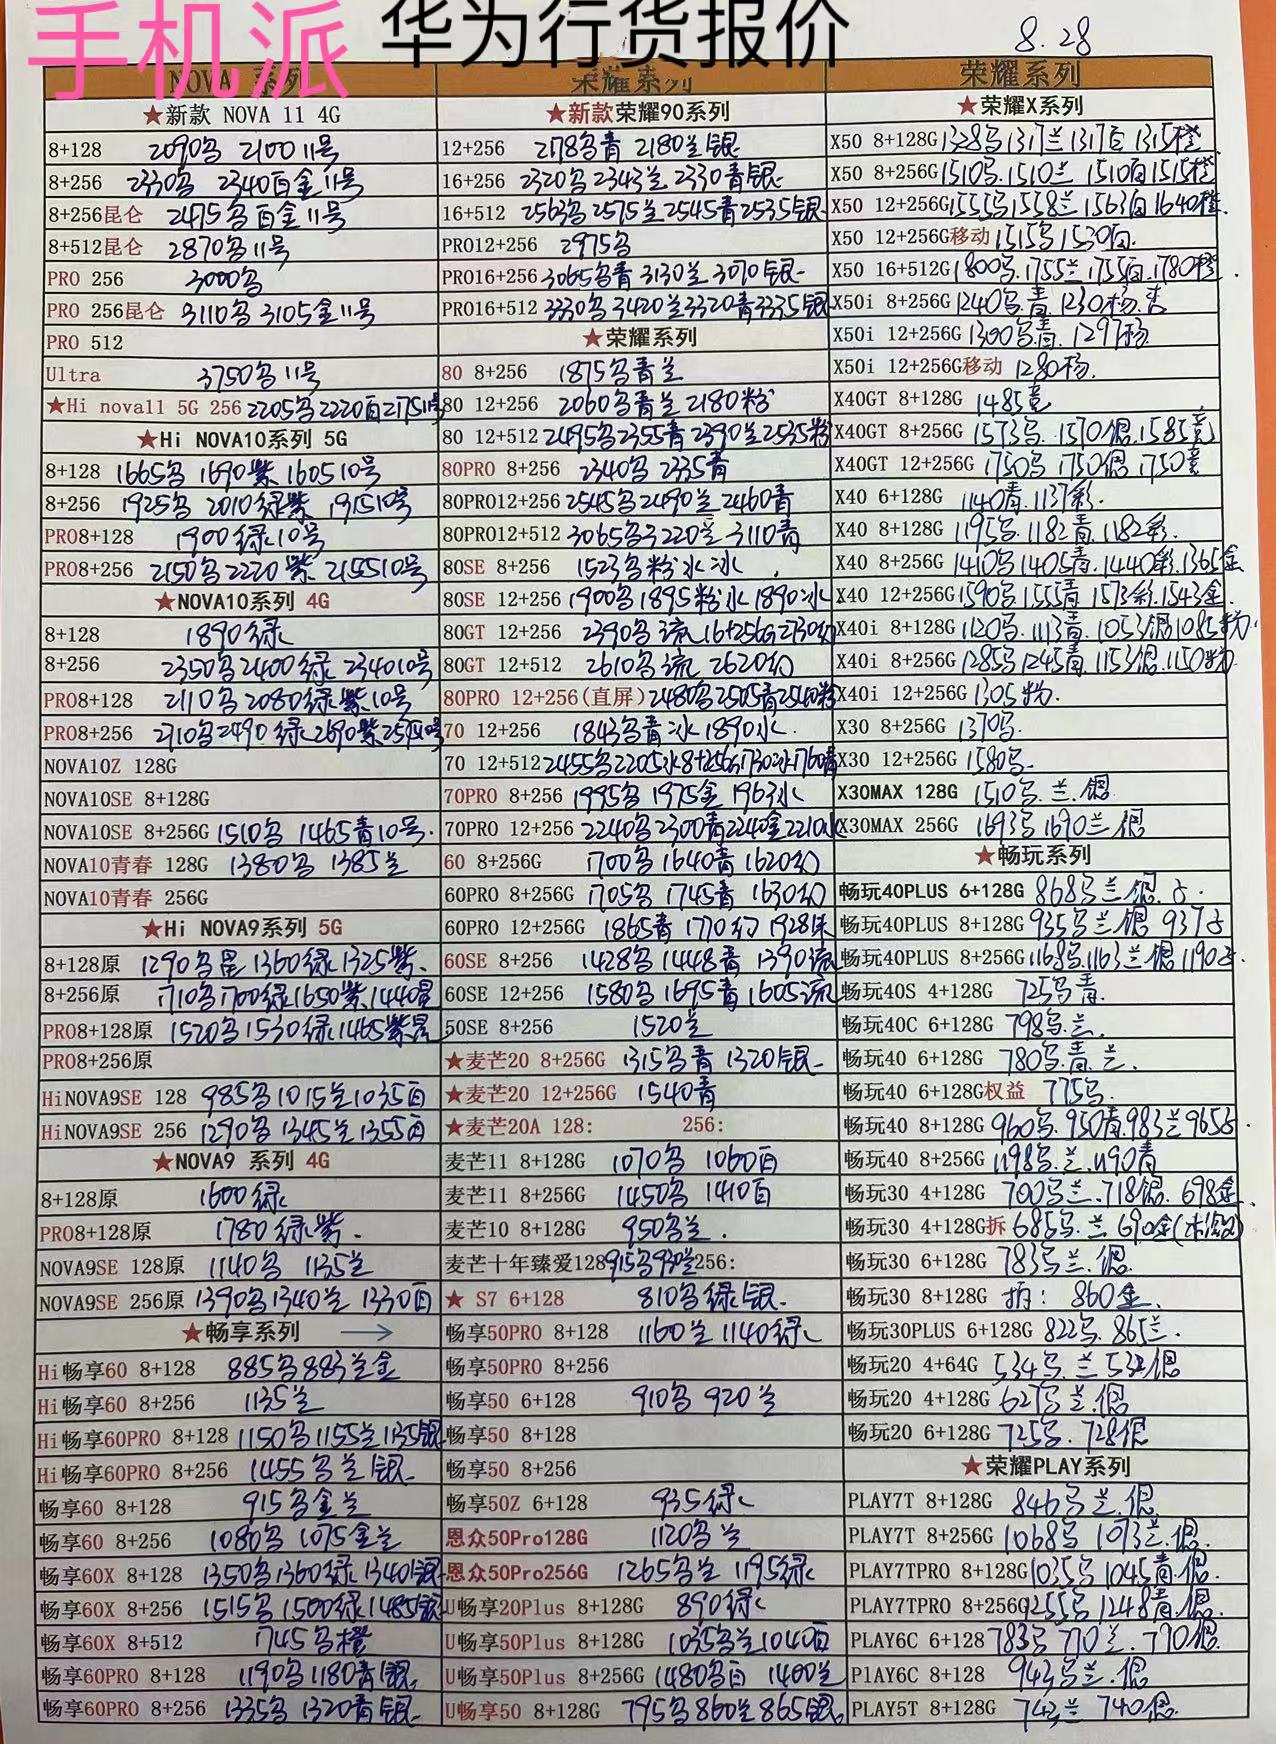 手机派 华为行货报价 8.28
NOVA 系列
★新款 NOVA 11 4G
8+128 2090乌 2100 11号
8+256 2330乌 2340百金11号
8+256昆仑 2475乌百金11号
8+512昆仑 2870乌11号
PRO 256 3000乌
PRO 256昆仑 3110乌 3105金11号
PRO 512
Ultra 3750乌11号
★Hi nova11 5G 256 2205乌2220百
★Hi NOVA10系列 5G
8+128 1665乌1690紫160510号
8+256 1925乌 2010绿紫 191510号
PRO8+128 1900绿10号
PRO8+256 2150乌2220紫215510号
★NOVA10系列 4G
8+128 1890绿
8+256 2350乌2400绿234010号
PRO8+128 2110乌2080绿紫10号
PRO8+256 2710乌2490绿2690紫
NOVA10Z 128G
NOVA10SE 8+128G
NOVA10SE 8+256G 1510乌1465青10号
NOVA10青春 128G 1380乌1385兰
NOVA10青春 256G
★Hi NOVA9系列 5G
8+128原 1290乌昆1360绿1325紫
8+256原 1710乌1700绿1650紫1440昆
PRO8+128原 1520乌1530绿1465紫昆
PRO8+256原
HiNOVA9SE 128 985乌1015兰1035百
HiNOVA9SE 256 1290乌1345兰1355百
★NOVA9 系列 4G
8+128原 1600绿
PRO8+128原 1780绿紫
NOVA9SE 128原 1140乌 1135兰
NOVA9SE 256原 1390乌1340兰1330百
★畅享系列 →
Hi畅享60 8+128 885乌883兰金
Hi畅享60 8+256 1135兰
Hi畅享60PRO 8+128 1150乌1155兰1135银
Hi畅享60PRO 8+256 1455乌兰银
畅享60 8+128 915乌金兰
畅享60 8+256 1080乌1075金兰
畅享60X 8+128 1350乌1360绿1340银
畅享60X 8+256 1515乌1500绿1485银
畅享60X 8+512 1745乌橙
畅享60PRO 8+128 1190乌1180青银
畅享60PRO 8+256 1335乌1320青银
荣耀系列
★新款荣耀90系列
12+256 2178乌青 2180兰银
16+256 2320乌2343兰2330青银
16+512 2563乌2575兰2545青2535银
PRO12+256 2975乌
PRO16+256 3065乌青3130兰3070银
PRO16+512 3330乌3420兰3320青3335银
★荣耀系列
80 8+256 1875乌青兰
80 12+256 2060乌青兰2180粉
80 12+512 2495乌2355青2390兰2535粉
80PRO 8+256 2340乌2335青
80PRO12+256 2545乌2490兰2460青
80PRO12+512 3065乌3220兰3110青
80SE 8+256 1523乌粉水冰
80SE 12+256 1900乌1895粉水1890冰
80GT 12+256 2390乌流16+256G2730幻
80GT 12+512 2610乌流2620幻
80PRO 12+256(直屏) 2480乌2505青2540粉
70 12+256 1843乌青冰1890水
70 12+512 2455乌2205水8+256G1730冰1760青
70PRO 8+256 1995乌1975金1963冰
70PRO 12+256 2240乌2300青2240金2210冰
60 8+256G 1700乌1640青1620幻
60PRO 8+256G 1705乌1745青1630幻
60PRO 12+256G 1865青1770幻1928朱
60SE 8+256 1428乌1448青1390流
60SE 12+256 1580乌1695青1605流
50SE 8+256 1520兰
★麦芒20 8+256G 1315乌青1320银
★麦芒20 12+256G 1540青
★麦芒20A 128: 256:
麦芒11 8+128G 1070乌1060百
麦芒11 8+256G 1450乌1410百
麦芒10 8+128G 950乌兰
麦芒十年臻爱128 915乌930兰256:
★ S7 6+128 810乌绿银
畅享50PRO 8+128 1160兰1140绿
畅享50PRO 8+256
畅享50 6+128 910乌920兰
畅享50 8+128
畅享50 8+256
畅享50Z 6+128 935绿
恩众50Pro128G 1120乌兰
恩众50Pro256G 1265乌兰1195绿
U畅享20Plus 8+128G 890绿
U畅享50Plus 8+128G 1035乌兰1040百
U畅享50Plus 8+256G 1480乌百1400兰
U畅享50 8+128G 795乌860兰865银
荣耀系列
★荣耀X系列
X50 8+128G 1328乌1317兰1317白1315橙
X50 8+256G 1510乌.1510兰 1510白1515橙
X50 12+256G 1555乌1558兰1563白1640橙
X50 12+256G移动 1515乌1530白
X50 16+512G 1800乌.1755兰1755白.1780橙
X50i 8+256G 1240乌.青.1230杨.杏
X50i 12+256G 1300乌青.1297杨
X50i 12+256G移动 1280杨.
X40GT 8+128G 1485竞
X40GT 8+256G 1573乌.1570银.1585竞
X40GT 12+256G 1750乌1750银1750竞
X40 6+128G 1140青.1137彩.
X40 8+128G 1195乌.1182青.1182彩.
X40 8+256G 1410乌1405青.1440彩.1365金
X40 12+256G 1590乌1555青1573彩.1543金
X40i 8+128G 1120乌.1113青.1053银1085粉
X40i 8+256G 1285乌1245青1153银.1150粉
X40i 12+256G 1305粉.
X30 8+256G 1370乌
X30 12+256G 1580乌
X30MAX 128G 1510乌.兰.银
X30MAX 256G 1693乌1690兰银
★畅玩系列
畅玩40PLUS 6+128G 868乌兰.银
畅玩40PLUS 8+128G 935乌兰银937
畅玩40PLUS 8+256G 1168乌.1163兰银1190
畅玩40S 4+128G 725乌青
畅玩40C 6+128G 798乌.兰.
畅玩40 6+128G 780乌.青.兰.
畅玩40 6+128G权益 775乌.
畅玩40 8+128G 960乌.950青.983兰965
畅玩40 8+256G 1198乌.兰.1190青
畅玩30 4+128G 700乌兰.718银.698金.
畅玩30 4+128G拆 685乌.兰690金
畅玩30 6+128G 783乌兰.银
畅玩30 8+128G 拆: 860金.
畅玩30PLUS 6+128G 822乌.865兰.
畅玩20 4+64G 534乌.兰532银
畅玩20 4+128G 627乌兰.银
畅玩20 6+128G 725乌.728银
★荣耀PLAY系列
PLAY7T 8+128G 846乌兰.银
PLAY7T 8+256G 1068乌1073兰.银.
PLAY7TPRO 8+128G 1035乌1045青.银
PLAY7TPRO 8+256G 1255乌1248青.银.
PLAY6C 6+128 783乌710兰.770银
PlAY6C 8+128 943乌兰.银
PLAY5T 8+128G 743兰740银.